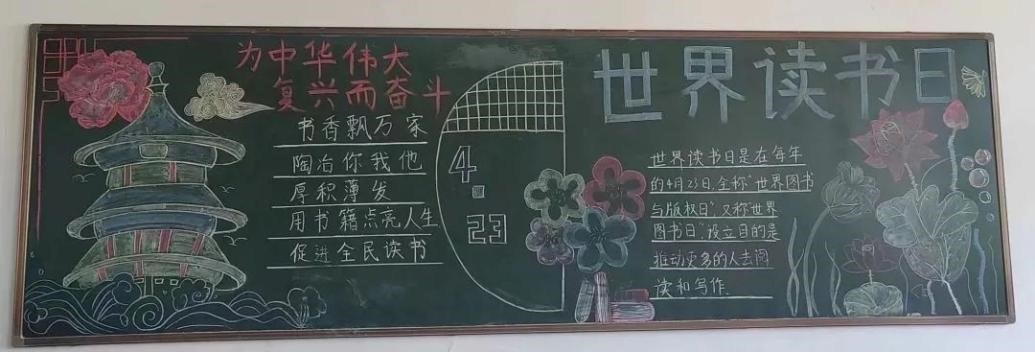 为中华伟大
复兴而奋斗
书香飘万家
陶冶你我他
厚积薄发
用书籍点亮人生
促进全民读书
4.23
世界读书日
世界读书日是在每年
的4月23日,全称“世界图书
与版权日”,又称“世界
图书日”,设立目的是
推动更多的人去阅
读和写作.